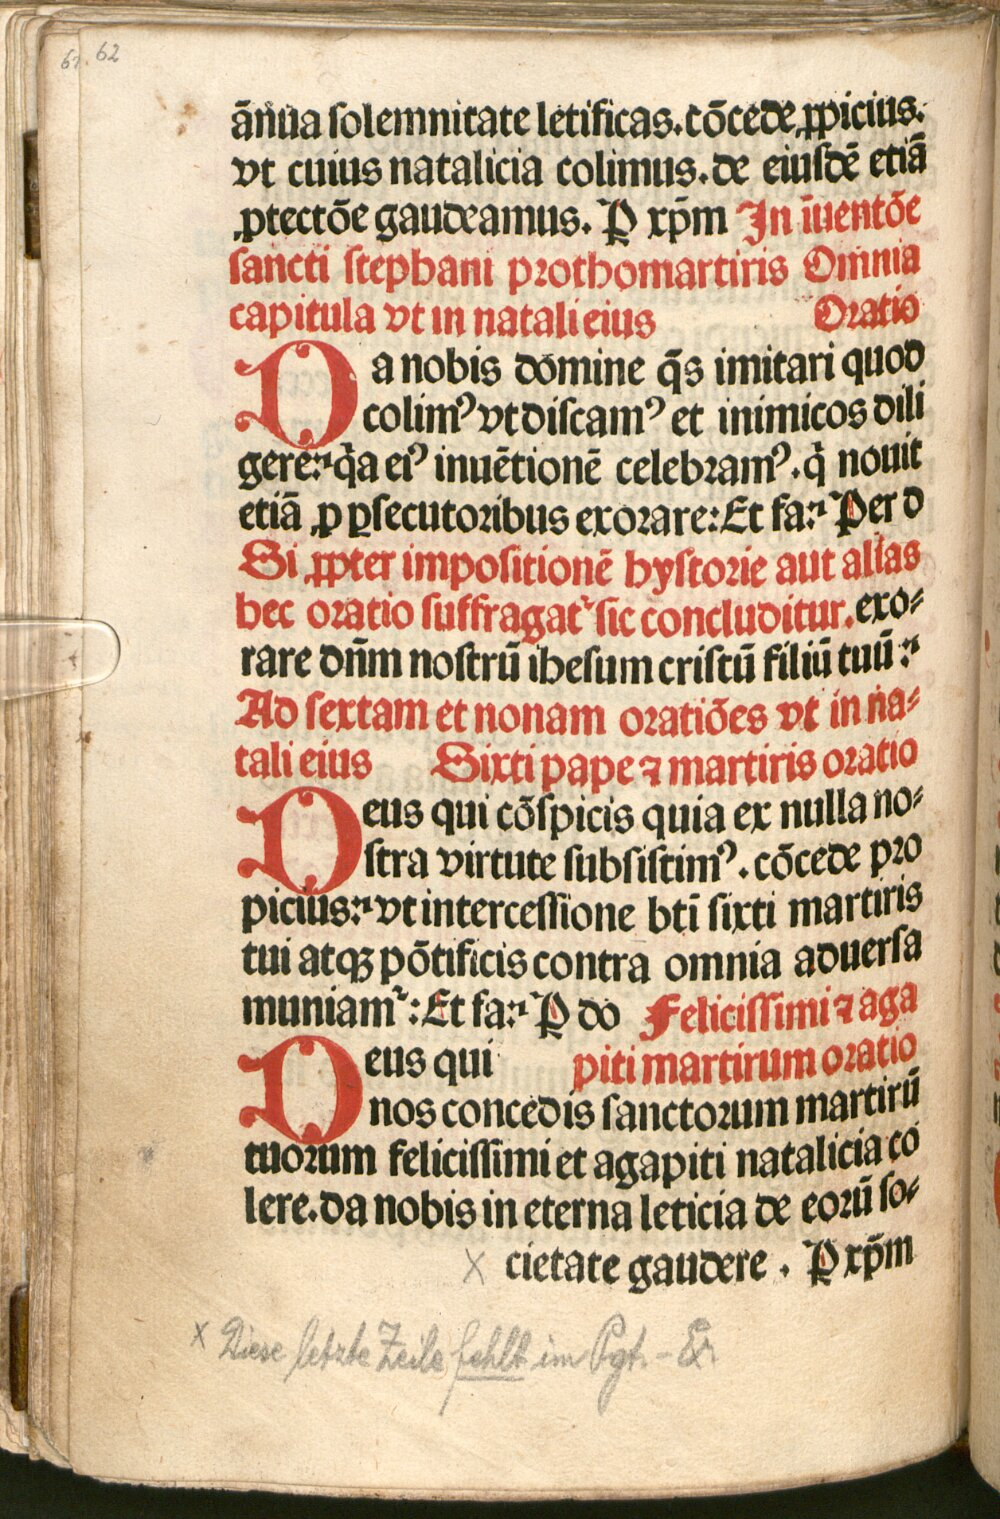 61. 62
ãnua solemnitate letificas. cõcede ꝓpicius.
vt cuius natalicia colimus. de eiusdẽ etiã
ꝓtectõe gaudeamus. P xp̃m In ĩuentõe
sancti stephani prothomartiris Omnia
capitula vt in natali eius Oratio
Da nobis domine q̃s imitari quod
colimꝰ vt discamꝰ et inimicos dili
gere: q̇a eiꝰ inuẽtionẽ celebramꝰ. q̇ nouit
etiã ꝓ ꝑsecutoribus exorare: Et fa: Per d
Si ꝓpter impositionẽ hystorie aut alias
hec oratio suffragat᷑ sic concluditur. exo⸗
rare dñm nostrũ ihesum cristũ filiũ tuũ :
Ad sextam et nonam oratiões vt in na⸗
tali eius Sixti pape ⁊ martiris oratio
Deus qui cõspicis quia ex nulla no⸗
stra virtute subsistimꝰ. cõcede pro
picius: vt intercessione bti̇̃ sixti martiris
tui atqꝫ põtificis contra omnia aduersa
muniam᷑: Et fa: P do Felicissimi ⁊ aga
Deus qui piti martirum oratio
nos concedis sanctorum martirũ
tuorum felicissimi et agapiti natalicia co
lere. da nobis in eterna leticia de eorũ so⸗
x cietate gaudere. P xp̃m
x Diese letzte Zeile fehlt im Pgt. - Ex.